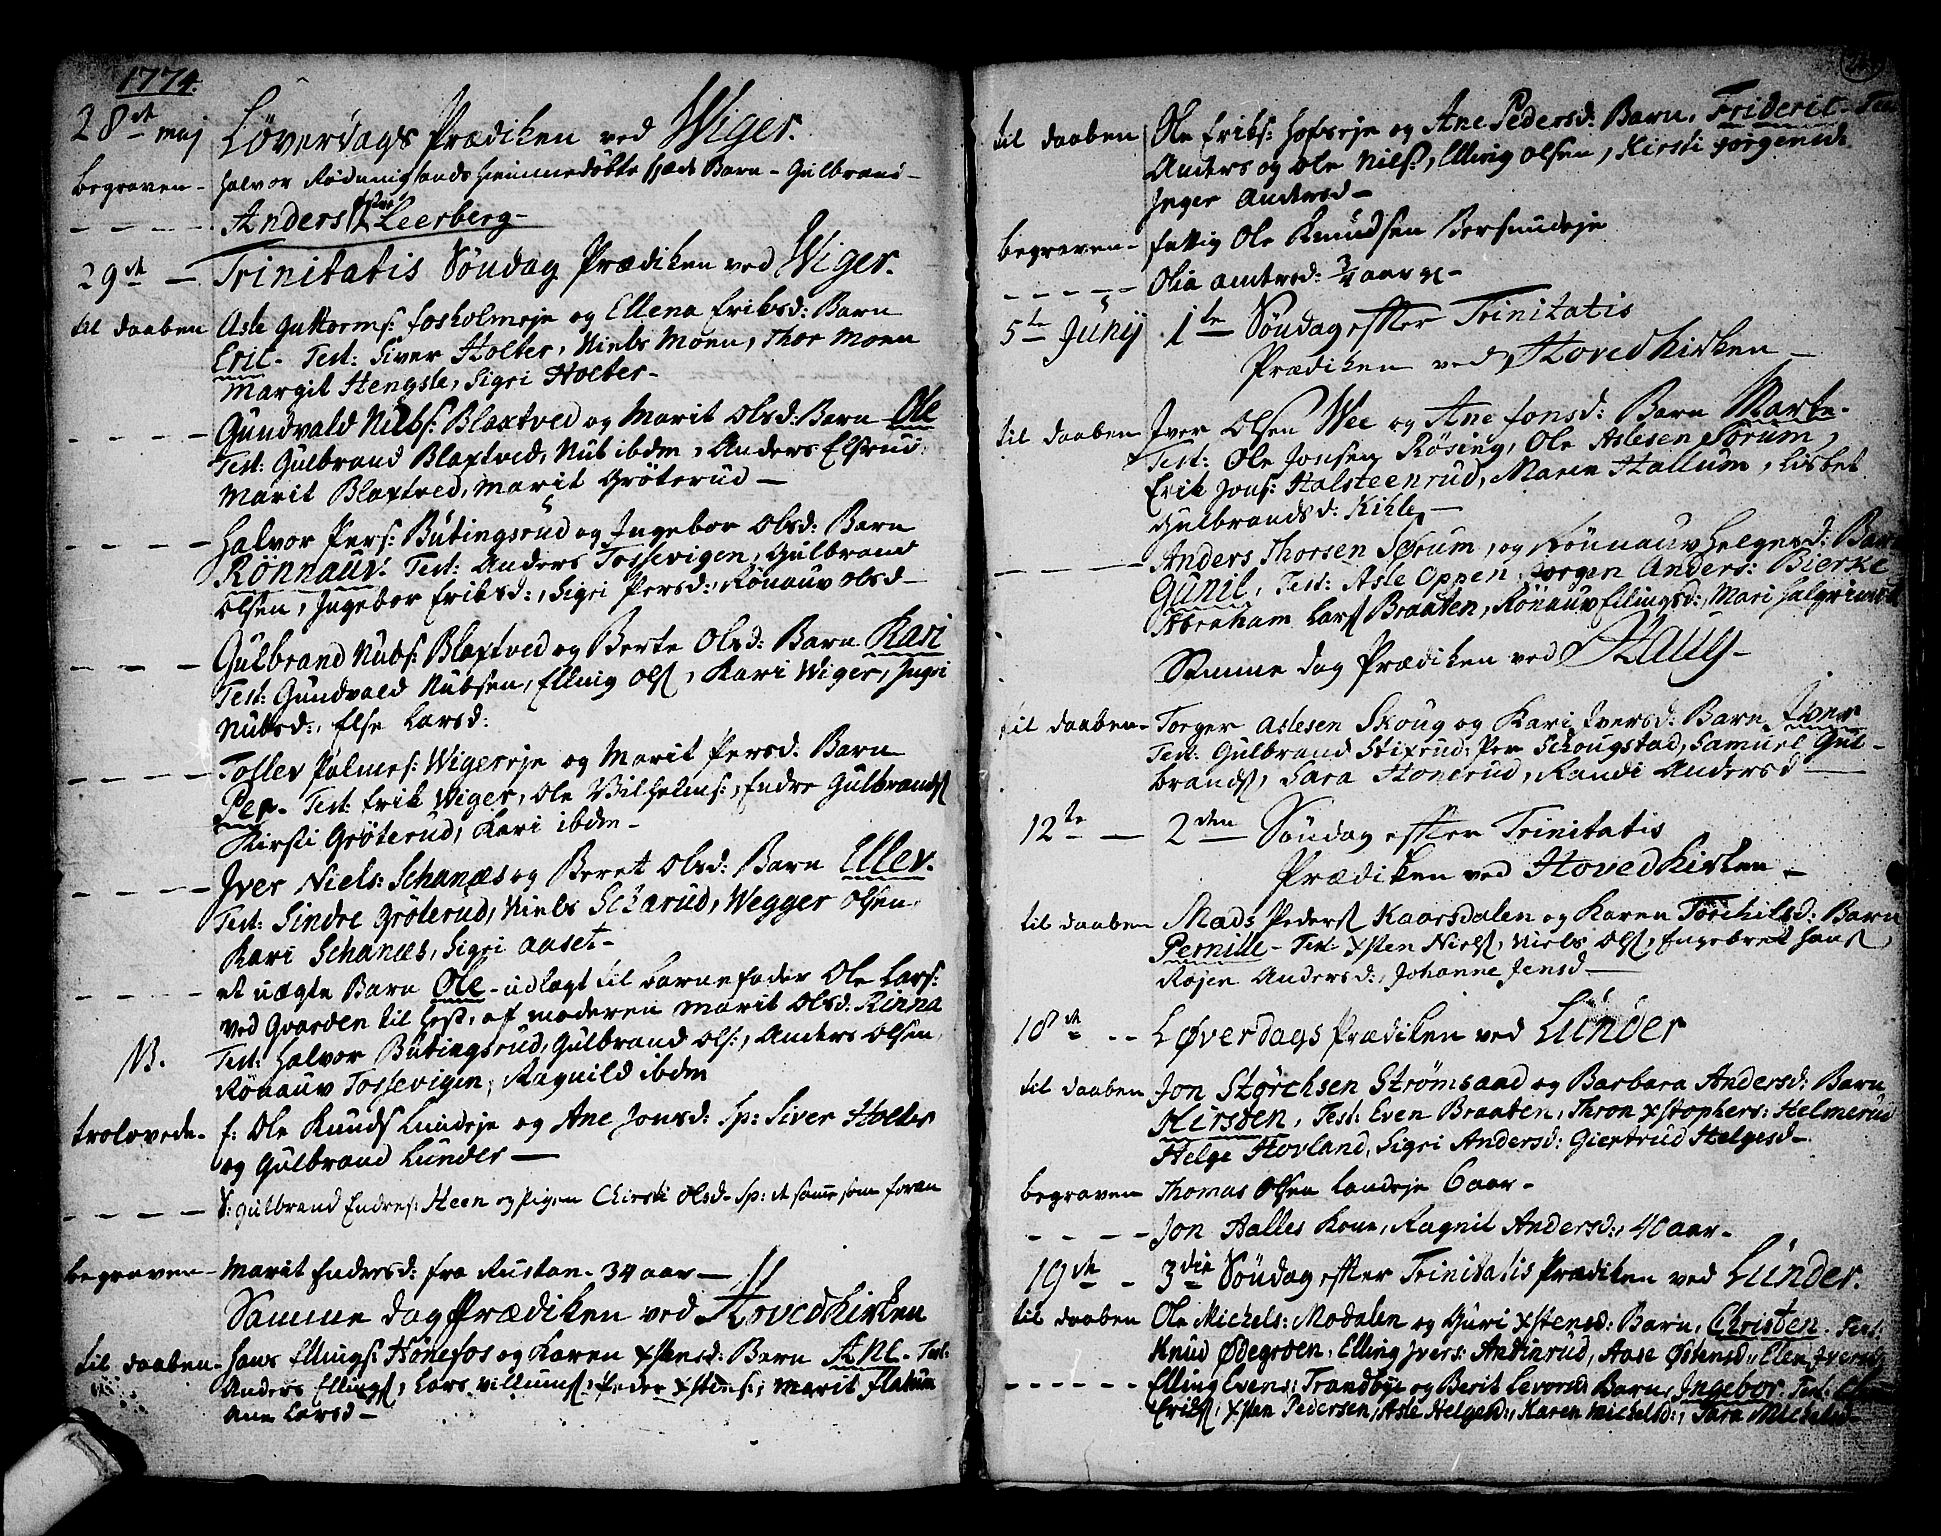 1774.
28de maj Løverdags Prædiken ved Wiger.
begraven - Halvor Rødningsands hiemmedøbte Barn - Gulbrand -
- - - - Anders Leerberg -
29de - Trinitatis Søndag Prædiken ved Wiger.
til daaben Asle Guttorms: foskolmeje og Ellena Eriksd: Barn
Eric - Test: Siver Holter, Niels Moen, Thor Moen
Margit Hengsle, Sigri Holter -
- - - - Gundvald Nubs: Blaxtved og Marit Olsd: Barn Ole
Test: Gulbrand Blaxtved, Nub ibdm, Anders Elsrud,
Marit Blaxtved, Marit Grøterud -
- - - - Halvor Pers: Butingsrud og Ingebor Olsd: Barn
Rønnauv. Test: Anders Tossevigen, Gulbrand
Olsen, Ingebor Eriksd:, Sigri Persd:, Rønauv Olsd -
- - - - Gulbrand Nubs: Blaxtved og Berte Olsd: Barn Kari
Test: Gundvald Nubsen, Elling Ols, Kari Wiger, Ingri
Nubsd:, Else Larsd:
- - - - Tollev Palmes: Wigereje og Marit Persd: Barn
Per - Test: Erik Wiger, Ole Vilhelms:, Endre Gulbrands
Kirsti Grøterud, Kari ibdm -
- - - - Iver Niels: Schanæs og Beret Olsd: Barn Ellev.
Test: Sindre Grøterud, Niels Scharud, Wegger Olsen,
Kari Schanæs, Sigri Aaset -
- - - - et uægte Barn Ole - udlagt til barnefader Ole Lars:
ved Gvarden til Hest, af moderen Marit Olsd: Rinna
NB. Test: Halvor Butingsrud, Gulbrand Ols:, Anders Olsen,
Rønauv Tossevigen, Ragnild ibdm
trolovede - f: Ole Knuds Lundeje og Ane Jonsd: Sp: Siver Holter
og Gulbrand Lunder -
- - - - S: Gulbrand Endres: Heen og pigen Chirsti Olsd - Sp: de samme som foran
begraven - Marit Endersd: fra Rustan - 34 aar -
Samme dag Prædiken ved Hovedkirken
til daaben - Hans Ellings: Hønefos og Karen Xstensd: Barn Ane - Test:
Anders Ellings, Lars Villums, Peder Xstens:, Marit Flakun
Ane Larsd -
til daaben Ole Eriks: Hofseje og Ane Pedersd: Barn, Frideric - Test
Anders og Ole Niels:, Elling Olsen, Kirsti Jørgensd:
Inger Andersd -
begraven - fattig Ole Knudsen Bersundeje
- - - - - Olia Andersd: 3/4 aar gl -
5te Junij 1te Søndag efter Trinitatis
Prædiken ved Hovedkirken -
til daaben Iver Olsen Wee og Ane Jonsd: Barn Marte -
Test: Ole Jonsen Røsing, Ole Aslesen Sørum,
Erik Jons: Halsteenrud, Maren Hallum, Lisbet
Gulbrandsd: Kihle -
- - - - Anders Thorsen Sørum, og Rønnauv Helgesd: Barn
Gunil, Test: Asle Oppen, Jørgen Anders: Bierke
Abraham Lars Braaten, Rønauv Ellingsd:, Mari Halgrimsd
Samme dag Prædiken ved Haug -
til daaben - Torger Aslesen Skoug og Kari Iversd: Barn Iver
Test: Gulbrand Stixrud, Per Schougstad, Samuel Gul-
brands, Sara Honerud, Randi Andersd -
12te - 2den Søndag efter Trinitatis
Prædiken ved Hovedkirken -
til daaben Mads Peders Kaarsdalen og Karen Torchilsd: Barn
Pernille - Test: Xsten Niels, Niels Ols, Engebret Hans,
Rojer Andersd:, Johanne Jensd -
18de - - Løverdags Prædiken ved Lunder
til daaben Jon Størchsen Strømsaad og Barbara Andersd: Barn
Kirsten, Test: Even Braaten, Thron Xstophers: Helmerud
Helge Hovland, Sigri Andersd: Giertrud Helgesd -
begraven Thomas Olsen Landeje 6 aar -
- - - - Jon Halles Kone, Ragnil Andersd:, 40 aar -
19de - 3die Søndag efter Trinitatis Prædiken ved Lunder.
til daaben Ole Michels: Modalen og Guri Xstensd: Barn, Christen - Test:
Knud Ødegrden, Elling Ivers: Andinrud, Aase Østensd:, Elen Iversd
- - - - - Elling Evens: Trandbye og Berit Levorsd Barn, Ingebor. Test:
Eriks, Xsten Pedersen, Asle Helgesd:, Karen Michelsd:, Sara Michelsd -